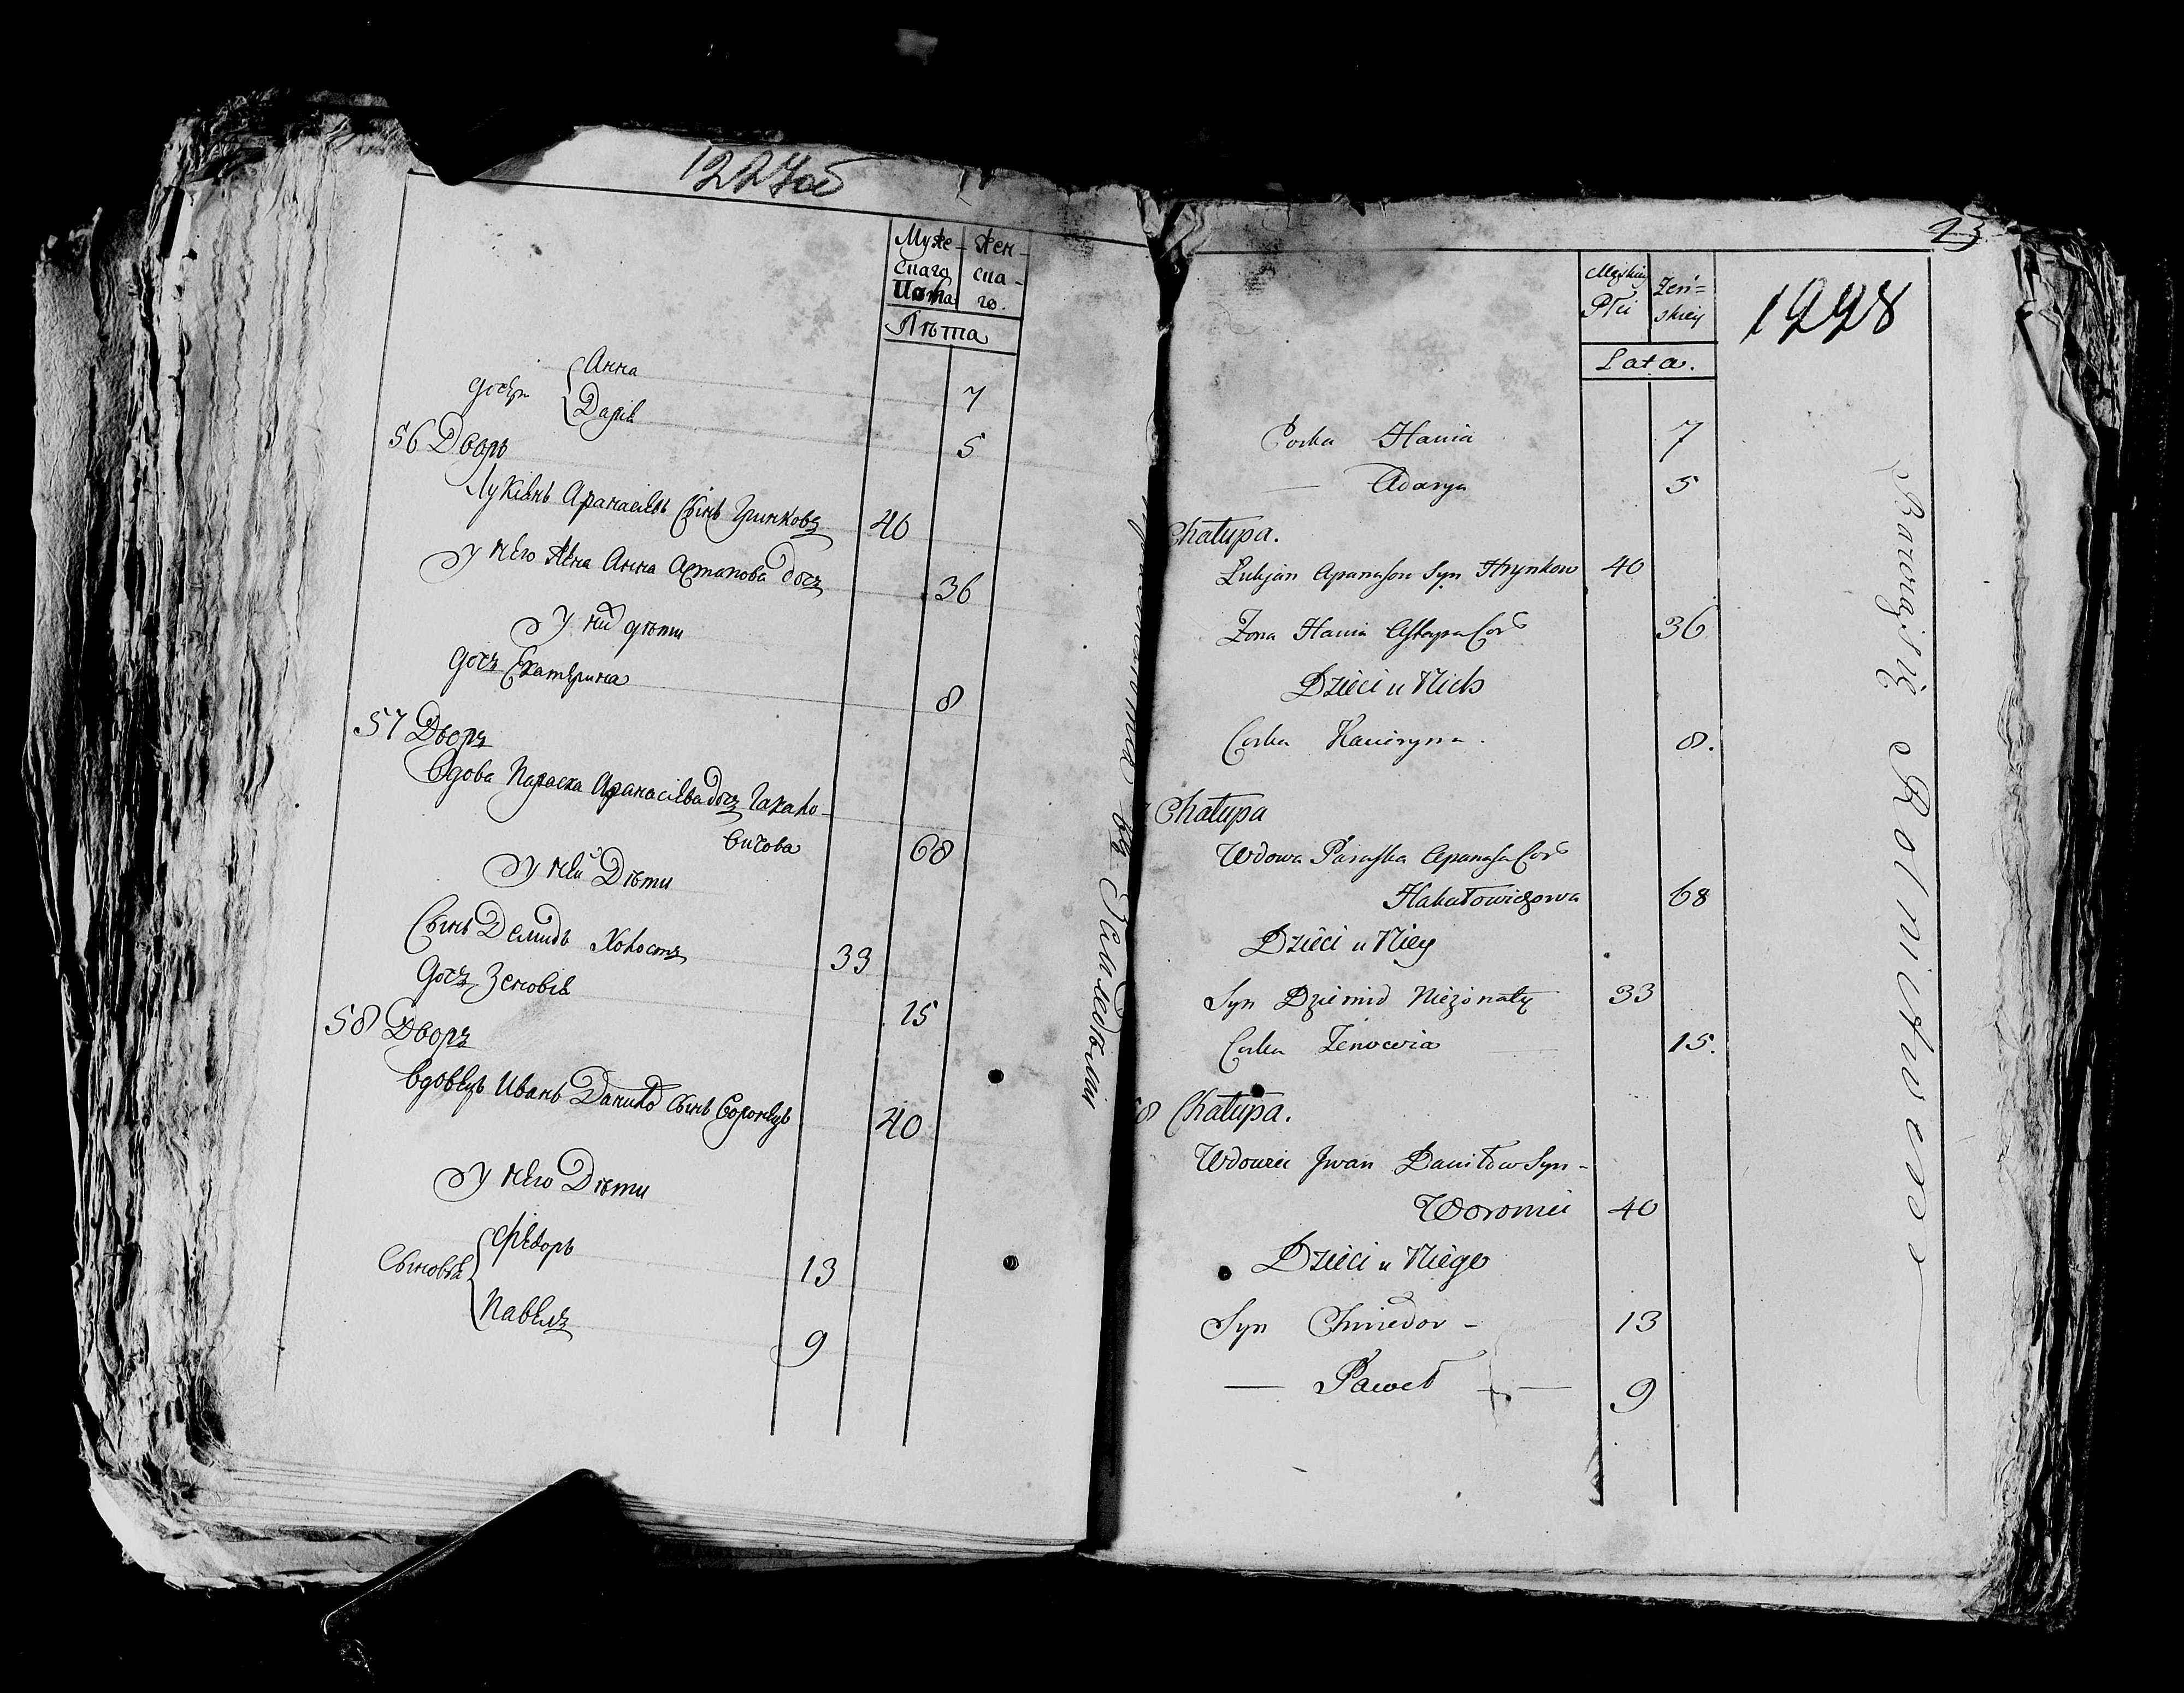 1227об
Муже- Жен-
скаго ска-
Пола го.
Лѣта
Анна 7
дочери
Дарія 5
56 Дворъ
Лукіянъ Аѳанасіевъ сынъ Гринковъ 40
у него жена Анна Астапова дочь 36
у них дѣти
дочь Екатерина 8
57 Дворъ
Вдова Параска Аѳанасіева дочь Гакало-
вичова 68
у ней Дѣти
Сынъ Демидъ Холостъ 33
дочь Зеновія 15
58 Дворъ
Вдовецъ Иванъ Данилов сынъ Воронецъ 40
у него Дѣти
Ѳедоръ 13
Сыновья
Павелъ 9
23
1228
Męskiey Żeń=
Płci skiey
Lata.
Corka Hania 7
— Adarya 5
Chałupa.
Łukjan Apanasow Syn Hrynkow 40
Zona Hania Astapa Cor 36
Dzieci u Nich
Corka Kacieryna. 8.
Chałupa
Wdowa Paraska Apanasa Cor
Hakałowiczowa 68
Dzieci u Niey
Syn Dziemid Nieżonaty 33
Corka Zenowia 15.
58 Chałupa.
Wdowiec Jwan Daniłow Syn-
Woroniec 40
Dzieci u Niego
Syn Chwiedor - 13
— Paweł — 9